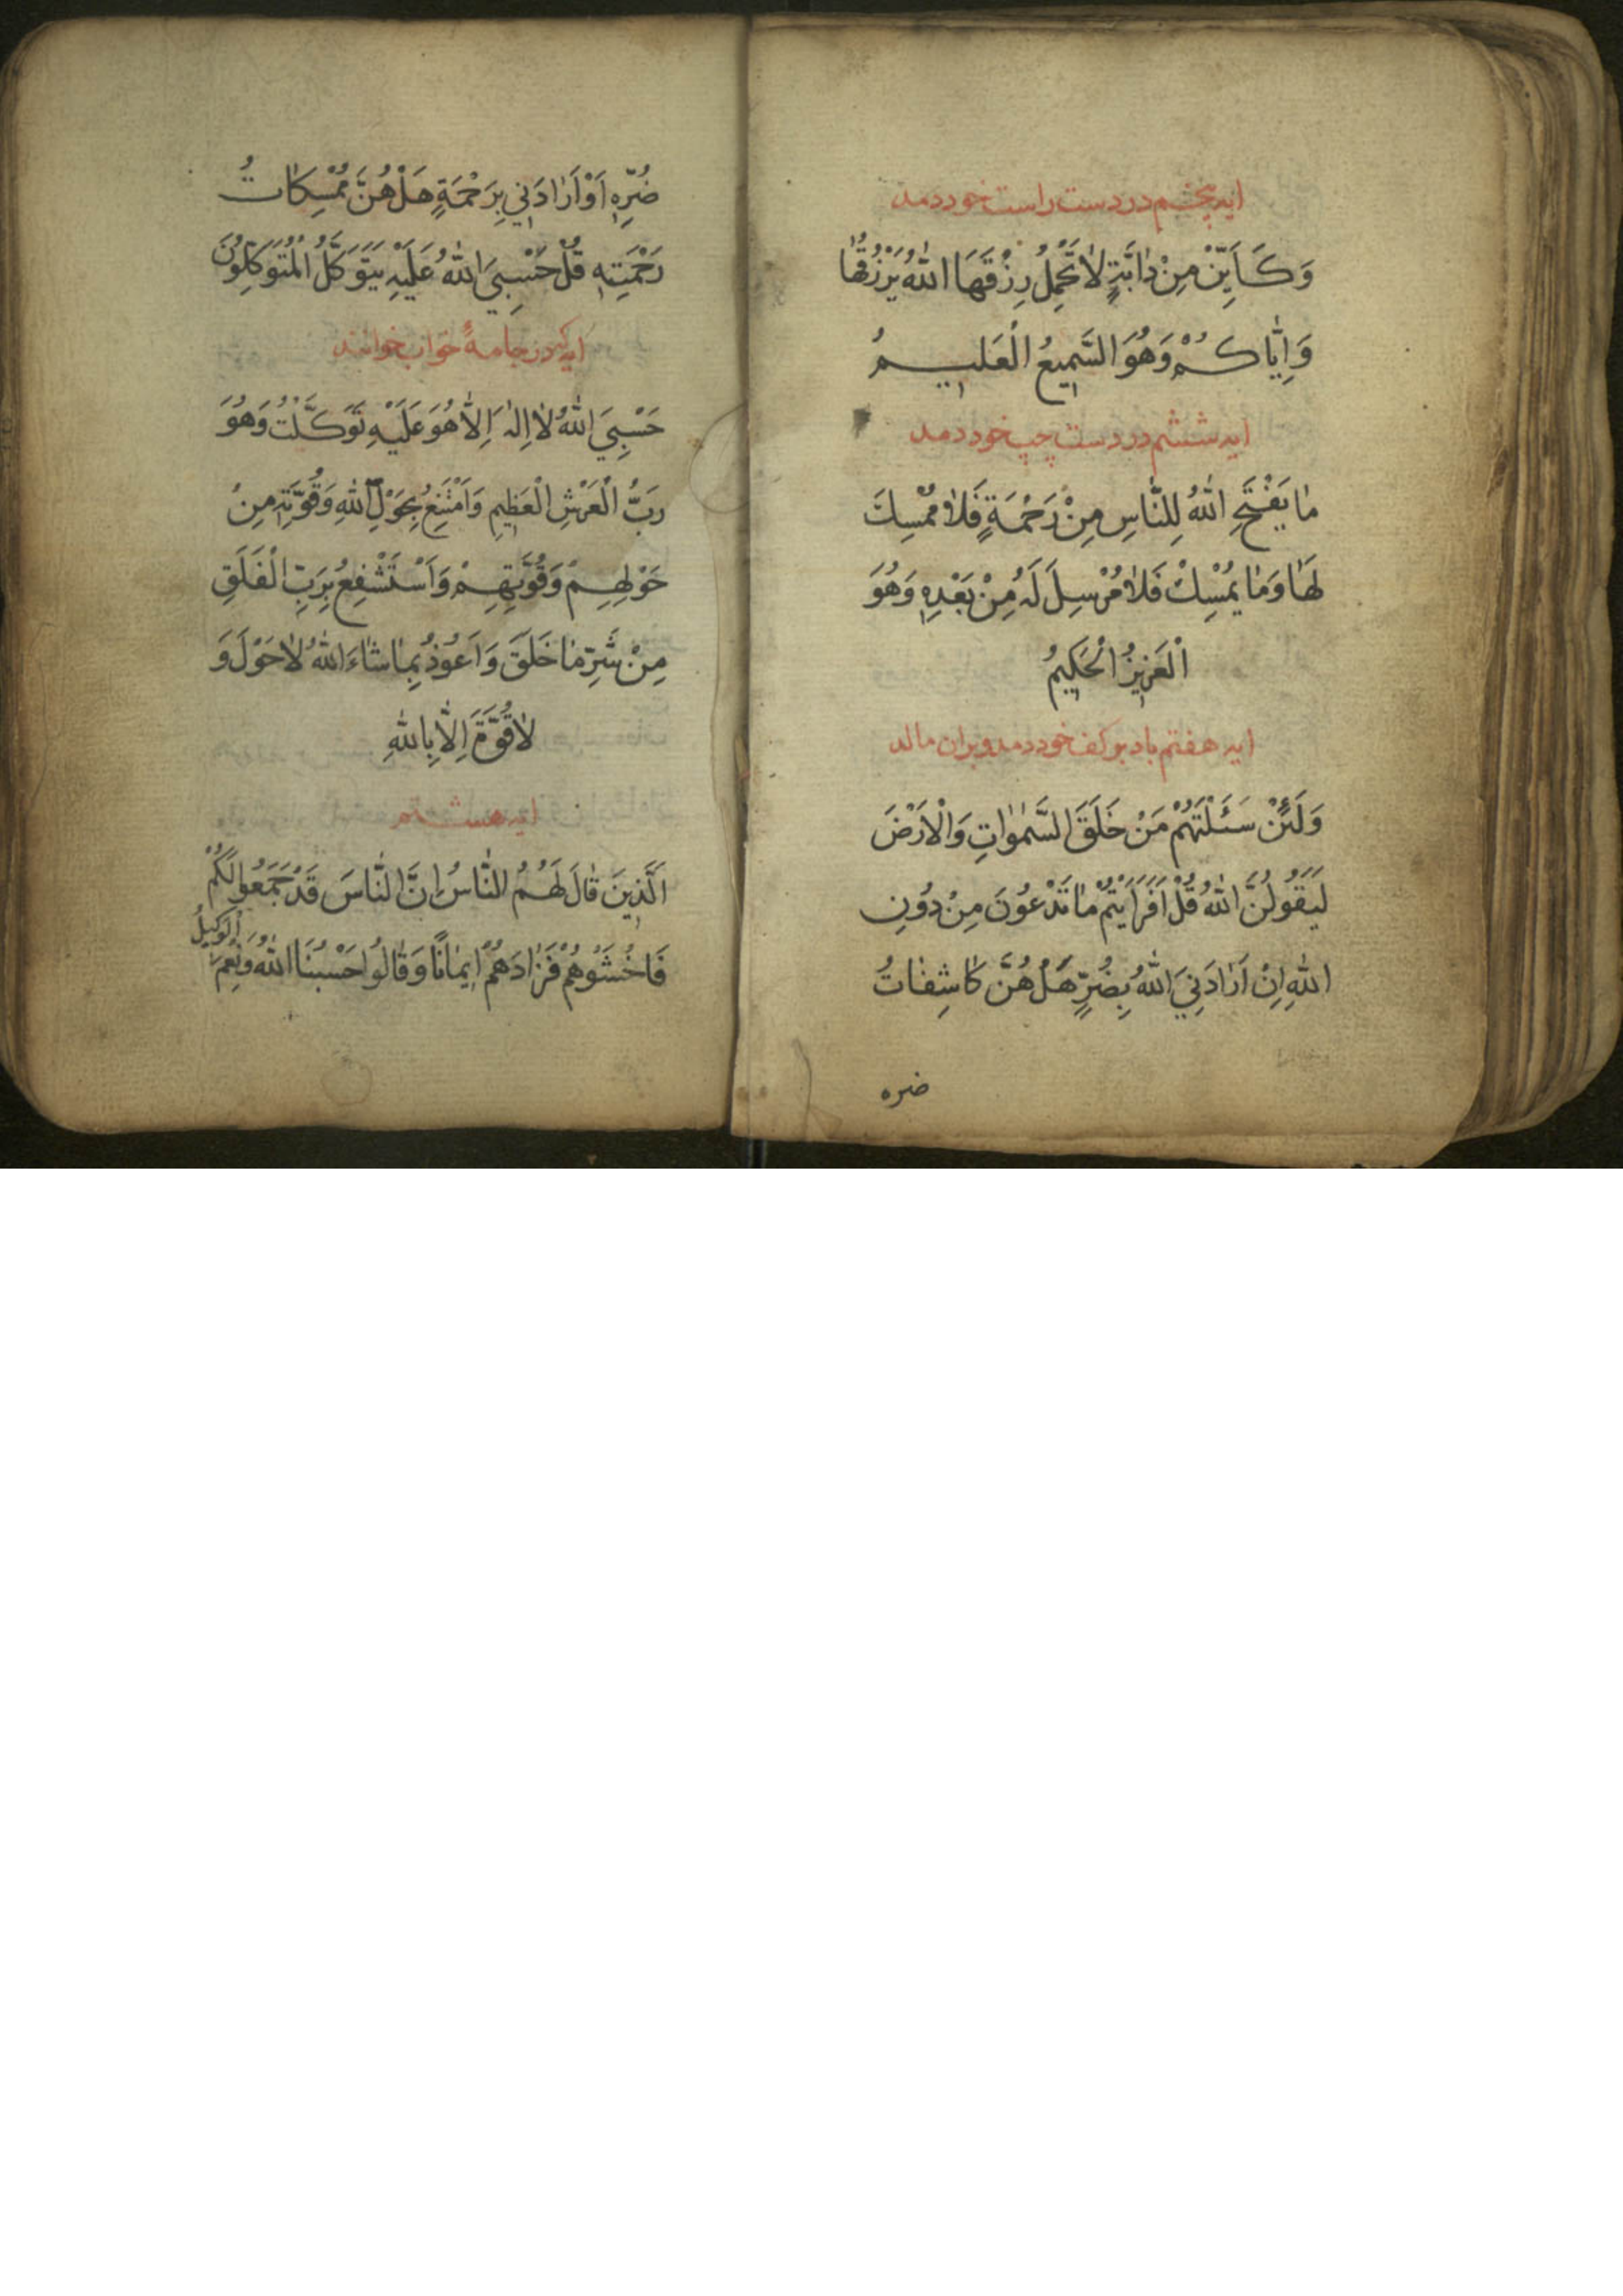 ایه پنجم در دست راست خود دمد
وَكَاَيِّنْ مِنْ دٰابَّةٍ لاٰ تَحْمِلُ رِزْقَهَا اللّٰهُ يَرْزُقُهٰا
وَاِيّٰاكُمْ وَهُوَ السَّمِيعُ الْعَلِيمُ
ایه ششم در دست چپ خود دمد
مٰا يَفْتَحِ اللّٰهُ لِلنّٰاسِ مِنْ رَحْمَةٍ فَلاٰ مُمْسِكَ
لَهٰا وَمٰا يُمْسِكْ فَلاٰ مُرْسِلَ لَهُ مِنْ بَعْدِهِ وَهُوَ
الْعَزِيزُ الْحَكِيمُ
ایه هفتم باد بر کف خود دمد و بران مالد
وَلَئِنْ سَئَلْتَهُمْ مَنْ خَلَقَ السَّمٰوٰاتِ وَالْاَرْضَ
لَيَقُولُنَّ اللّٰهُ قُلْ اَفَرَاَيْتُمْ مٰا تَدْعُونَ مِنْ دُونِ
اللّٰهِ اِنْ اَرٰادَنِيَ اللّٰهُ بِضُرٍّ هَلْ هُنَّ كٰاشِفٰاتُ
ضره
ضُرِّهِ اَوْ اَرٰادَنِي بِرَحْمَةٍ هَلْ هُنَّ مُمْسِكٰاتُ
رَحْمَتِهِ قُلْ حَسْبِيَ اللّٰهُ عَلَيْهِ يَتَوَكَّلُ الْمُتَوَكِّلُونَ
در جامهٔ خواب خوانند
حَسْبِيَ اللّٰهُ لاٰ اِلٰهَ اِلاّٰ هُوَ عَلَيْهِ تَوَكَّلْتُ وَهُوَ
رَبُّ الْعَرْشِ الْعَظِيمِ وَاَمْتَنِعُ بِحَوْلِ اللّٰهِ وَقُوَّتِهِ مِنْ
حَوْلِهِمْ وَقُوَّتِهِمْ وَاَسْتَشْفِعُ بِرَبِّ الْفَلَقِ
مِنْ شَرِّ مٰا خَلَقَ وَاَعُوذُ بِمٰا شٰاءَ اللّٰهُ لاٰ حَوْلَ وَ
لاٰ قُوَّةَ اِلّٰا بِاللّٰهِ
ایه هشتم
اَلَّذِينَ قٰالَ لَهُمُ النّٰاسُ اِنَّ النّٰاسَ قَدْ جَمَعُوا لَكُمْ
فَاخْشَوْهُمْ فَزٰادَهُمْ اِيمٰانًا وَقٰالُوا حَسْبُنَا اللّٰهُ وَنِعْمَ الْوَكِيلُ